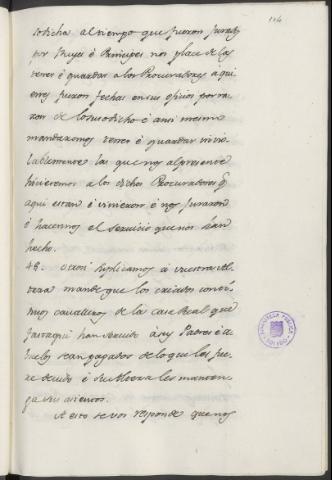 114
sodicha al tiempo que fueron jurados
por Reyes é Principes nos place de las
tener é guardar a los Procuradores a qui
enes fueron fechas en sus oficios por ra
zon de lo susodicho é ansi mismo
mandaremos tener é guardar invio
lablemente las que nos al presente
hicieremos a los dichos Procuradores q
aqui estan é vinieron é nos juraron
é hacernos el servicio que nos han
hecho.
48. Otrosi suplicamos á vuestra Al
teza mande que los criados conti
nuos cavalleros de la casa Real que
fasta qui han servido á sus Padres é a
buelos sean pagados de lo que les fue
re devido é su Alteza les manten
ga sus asientos.
A esto se vos responde que nos
BIBLIOTECA PUBLICA
TOLEDO